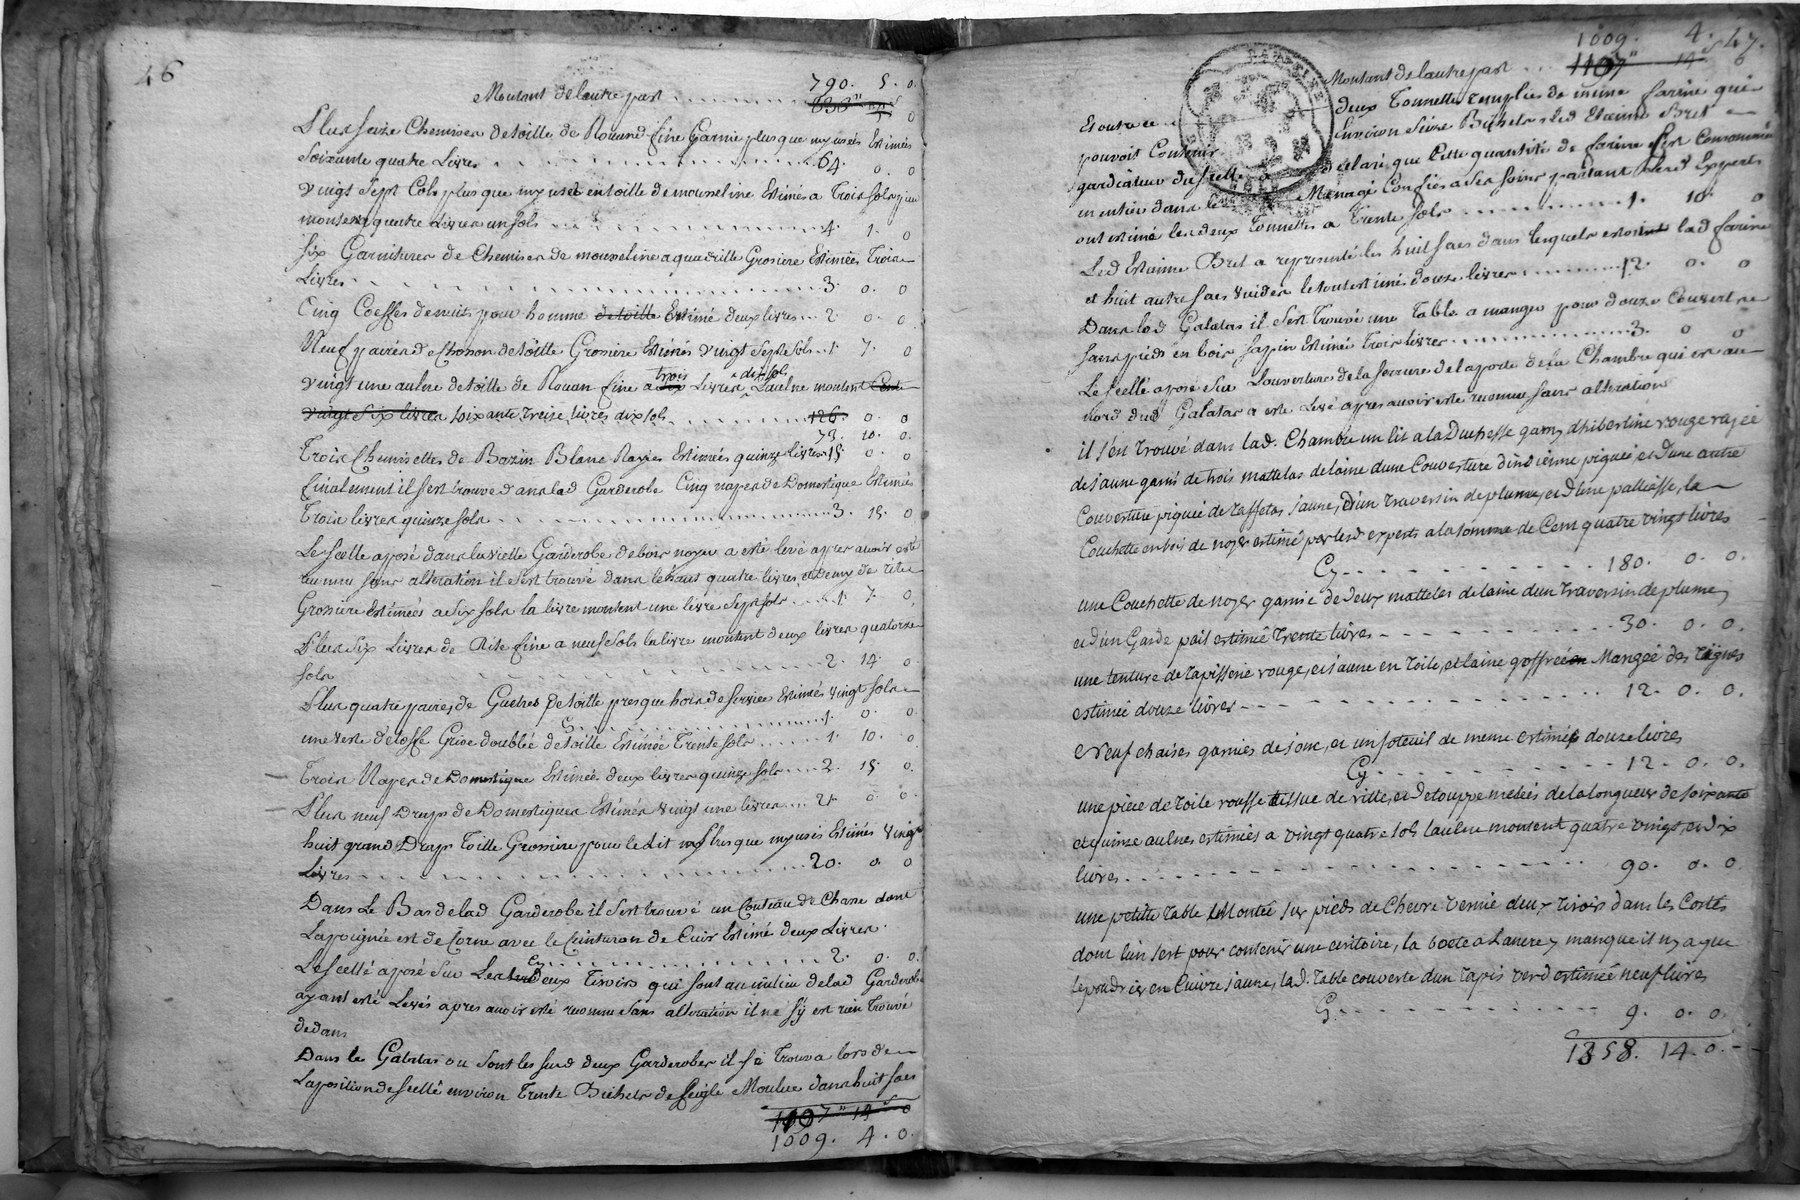 46
Montant de lautre part 790. 5. 0.
Plus seize Chemises de toille de Rouand fine Garnie plus que my usés Estimés
Soixante quatre Livres 64. 0. 0
vingt sept Cols plus que my usés en toille de mousseline Estimés a Trois sols piece
montent quatre Livres un sols 4. 1. 0
six Garnitures de Chemises de mousseline a quadrille Grosiere Estimées Trois
Livres 3. 0. 0
Cinq Coeffes de nuits pour homme de toille Estimé deux livres 2 0. 0.
Neuf paires de chosson de toille Grosiere Estimés vingt sept sols 1. 7. 0
vingt une aulne de toille de Rouan fine a trois Livres dix sols Laulne montent Cent
vingt six livres soixante treize livres dix sols 126. 0. 0
73. 10. 0.
Trois Chemisettes de Bazin Blanc Rayes Estimées quinze livres 15 0. 0
finalement il sest trouvé dans lad Garderobe Cinq napes de Domestique Estimés
Trois livres quinze sols 3. 15. 0
Le scellé aposé dans la vielle Garderobe de bois noyer a esté levé apres avoir esté
reconnu sans alteration il sest trouvé dans le haut quatre livres et demy de rite
Grosiere Estimées a six sols la livre montent une livre sept sols 1. 7. 0
Plus six Livres de Rite fine a neuf sols la livre montent deux livres quatorze
sols 2. 14. 0
Plus quatre paires de Guetres de toille presque hors de service Estimés vingt sols
Cy 1. 0. 0.
une veste d'etoffe Grise doublée de toille Estimée Trente sols 1. 10. 0
Trois Napes de Domestique Estimées deux livres quinze sols 2. 15. 0.
Plus neuf Draps de Domestiques Estimés vingt une livres 21. 0. 0.
huit grand Draps Toille Grossiere pour le dit plus que my usés Estimés vingt
Livres 20. 0. 0
Dans Le Bas de lad Garderobe il sest trouvé un Couteau de Chasse dont
La poignée est de Corne avec le Ceinturon de Cuir Estimé deux Livres
Cy 2. 0. 0.
Le scellé aposé sur Les deux Tiroirs qui sont au milieu de lad Garderobe
ayant esté Levés apres avoir esté reconnu sans alteration il ne sy est rien Trouvé
dedans
Dans le Galatas ou sont les susd deux Garderobes il se Trouva lors de
Laposition de scellé environ Trente Bichets de seigle Moulue dans huit sacs
1107 14 0
1009. 4. 0.
1009. 4. 47.
Montant de lautre part 1107
Et outre ce deux Tonnettes remplies de meme farine qui
pouvoit Contenir Environ seize Bichets led Etienne Bret
gardiateur du scellé a declaré que Cette quantité de farine sest Consommée
en entier dans le Menage Confies a ses soins partant lesd Experts
ont estimé les deux Tonnettes a Trente sols 1. 10. 0
Led Estienne Bret a representé les huit sacs dans lesquels estoint lad farine
et huit autre sacs vuides le tout estimés douze livres 12. 0. 0
Dans lad Galatas il sest Trouvé une Table a manger pour douze Couvert
sans pieds en bois sapin Estimée Trois livres 3. 0 0
Le scellé aposé sur Louverture de la serrure de la porte de la Chambre qui est au
nord dud Galatas a esté Levé apres avoir esté reconnu sans alteration
il s'en trouvé dans lad. Chambre un lit a la Duchesse garny dhibertine rouge rayée
de jaune garni de trois mattelas de laine dune Couverture dindiénne piquée et d'une autre
Couverture piquée de taffetas jaune, d'un traversin de plume, et d'une palliasse, la
Couchette en bois de noyer estimé par lesd experts a la somme de Cent quatre vingt livres
Cy 180. 0. 0.
une Couchette de noyer garnie de deux mattelas de laine dun traversin de plume,
et d'un Garde pail estimée trente livres 30. 0. 0.
une tenture de tapisserie rouge, et jaune en toile, et laine goffrée Mangée des tignes
estimée douze livres 12. 0. 0.
Neuf chaises garnies de jonc, et un foteuil de meme estimés douze livres
Cy 12. 0. 0.
une piece de toile rousse tissue de ritte, et d'etouppe melées de la longueur de soixante
et quinze aulnes estimées a vingt quatre sols laulne montent quatre vingt, et dix
livres 90. 0. 0
une petitte table Montée sur pieds de Chevre vernie deux tiroirs dans les Costés
dont l'un sert pour contenir une ecritoire, la boete a Lancre y manque il ny a que
le poudrier en Cuivre jaune, lad. table couverte d'un tapis verd estimée neuf livres
Cy 9. 0. 0.
1358. 14. 0.